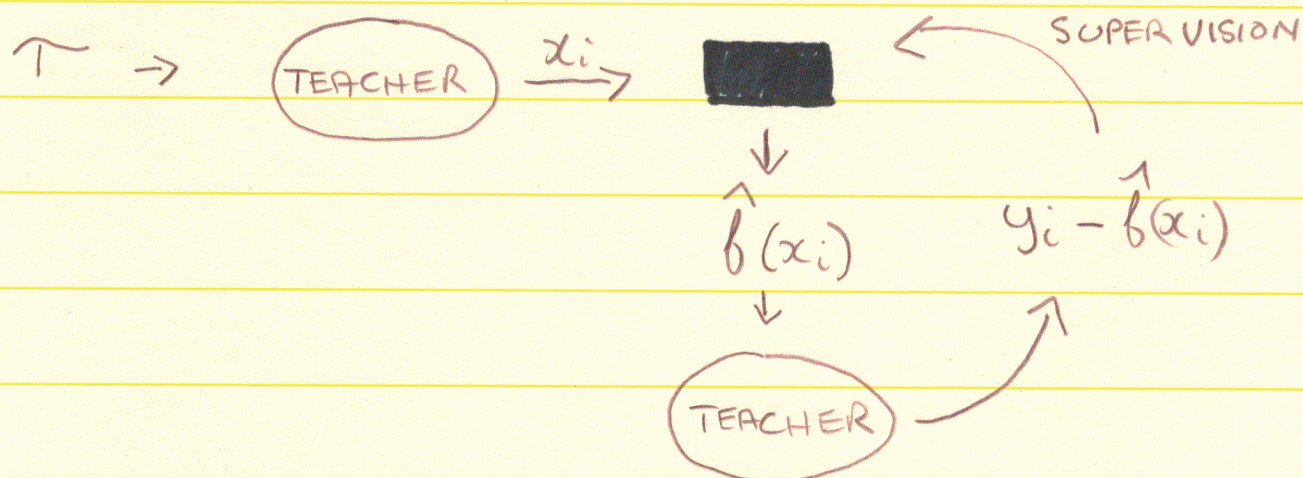 τ → TEACHER xᵢ SUPERVISION
f̂(xᵢ) yᵢ − f̂(xᵢ)
TEACHER